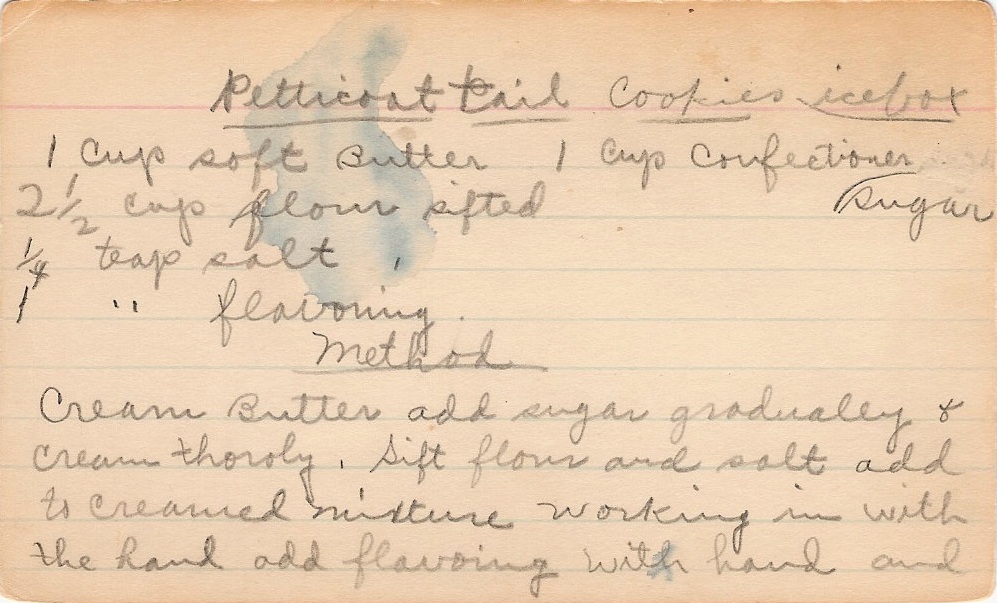 Petticoat tail Cookies icebox
1 cup soft Butter 1 cup Confectioner
2 1/2 cup flour sifted sugar
1/4 teasp salt
1 " flavoring.
Method
Cream Butter add sugar gradualey &
cream thoroly. Sift flour and salt add
to creamed mixture working in with
the hand add flavoring with hand and